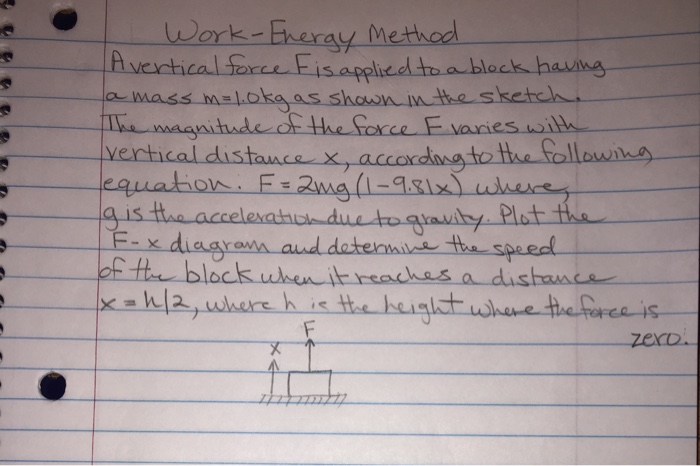 Work-Energy Method
A vertical force F is applied to a block having
a mass m=1.0kg as shown in the sketch.
The magnitude of the force F varies with
vertical distance x, according to the following
equation. F = 2mg (1-9.81x) where,
g is the acceleration due to gravity. Plot the
F-x diagram and determine the speed
of the block when it reaches a distance
x = h/2, where h is the height where the force is
zero.
F
x